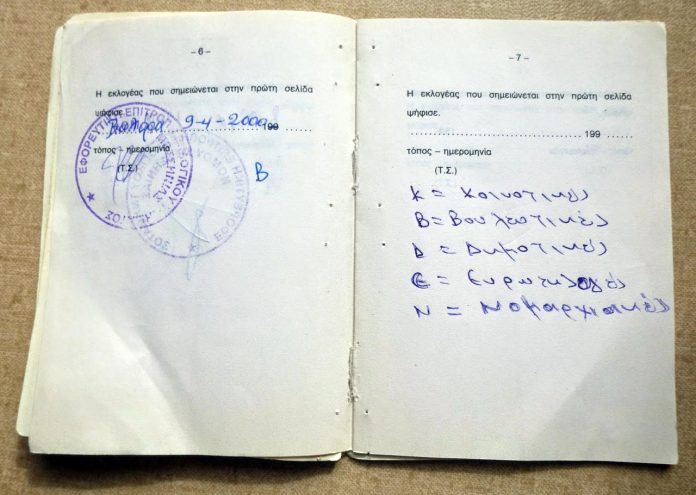 – 6 –
Η εκλογέας που σημειώνεται στην πρώτη σελίδα
ψήφισε.
9-4-2000 199 ......
τόπος – ημερομηνία
(Τ.Σ.)
Β
ΕΦΟΡΕΥΤΙΚ
– 7 –
Η εκλογέας που σημειώνεται στην πρώτη σελίδα
ψήφισε.
........................................ 199 ......
τόπος – ημερομηνία
(Τ.Σ.)
Κ = Κοινοτικές
Β = Βουλευτικές
Δ = Δημοτικές
Ε = Ευρωεκλογές
Ν = Νομαρχιακές